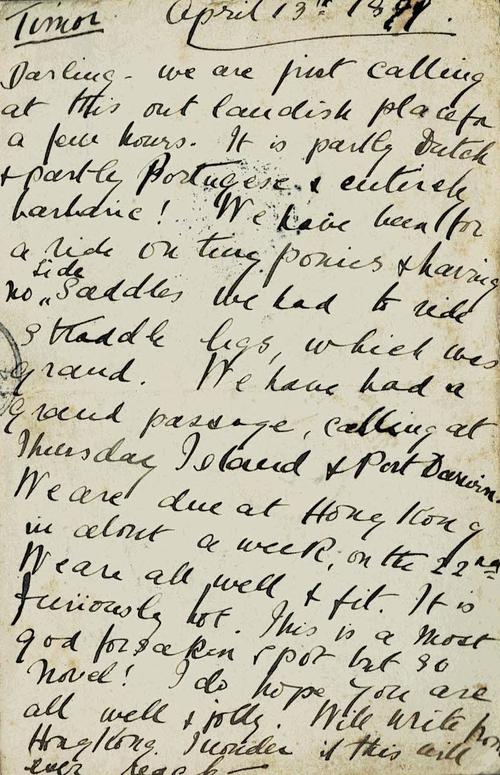 Timor April 13th 1899.
Darling - we are just calling
at this out landish place for
a few hours. It is partly Dutch
& partly Portugese & entirely
barbaric! We have been for
a ride on tiny ponies & having
no side Saddles we had to ride
straddle legs, which was
grand. We have had a
grand passage, calling at
Thursday Island & Port Darwin.
We are due at Hong Kong
in about a week, on the 22nd
We are all well & fit. It is
furiously hot. This is a most
god forsaken spot but so
novel! I do hope you are
all well & jolly. Will write from
Hong Kong. I wonder if this will
ever reach